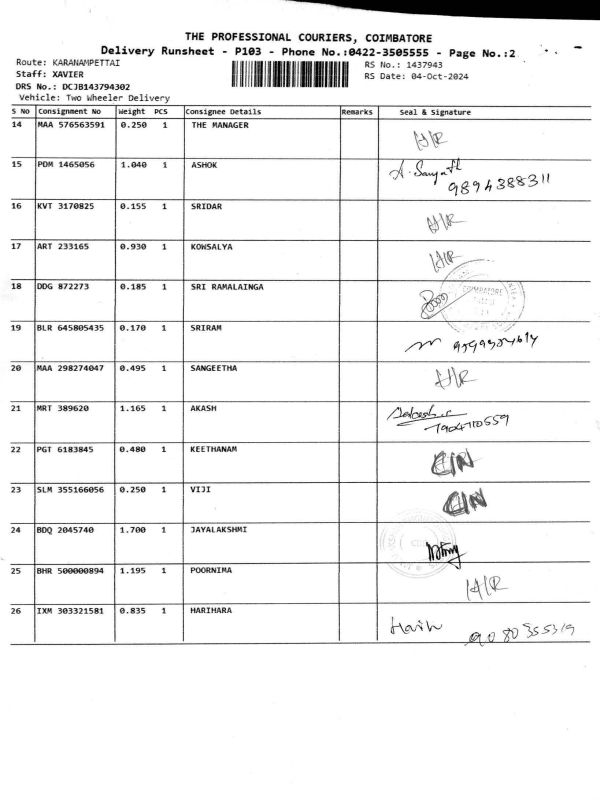 THE PROFESSIONAL COURIERS, COIMBATORE
Delivery Runsheet - P103 - Phone No.:0422-3505555 - Page No.:2
Route: KARANAMPETTAI RS No.: 1437943
Staff: XAVIER RS Date: 04-Oct-2024
DRS No.: DCJB143794302
Vehicle: Two Wheeler Delivery
S No Consignment No Weight PCS Consignee Details Remarks Seal & Signature
14 MAA 576563591 0.250 1 THE MANAGER H/R
15 PDM 1465056 1.040 1 ASHOK
9894388311
16 KVT 3170825 0.155 1 SRIDAR H/R
17 ART 233165 0.930 1 KOWSALYA H/R
18 DDG 872273 0.185 1 SRI RAMALAINGA COIMBATORE
19 BLR 645805435 0.170 1 SRIRAM
20 MAA 298274047 0.495 1 SANGEETHA H/R
21 MRT 389620 1.165 1 AKASH
7904710559
22 PGT 6183845 0.480 1 KEETHANAM
23 SLM 355166056 0.250 1 VIJI
24 BDQ 2045740 1.700 1 JAYALAKSHMI
25 BHR 500000894 1.195 1 POORNIMA H/R
26 IXM 303321581 0.835 1 HARIHARA Hari
9080355319